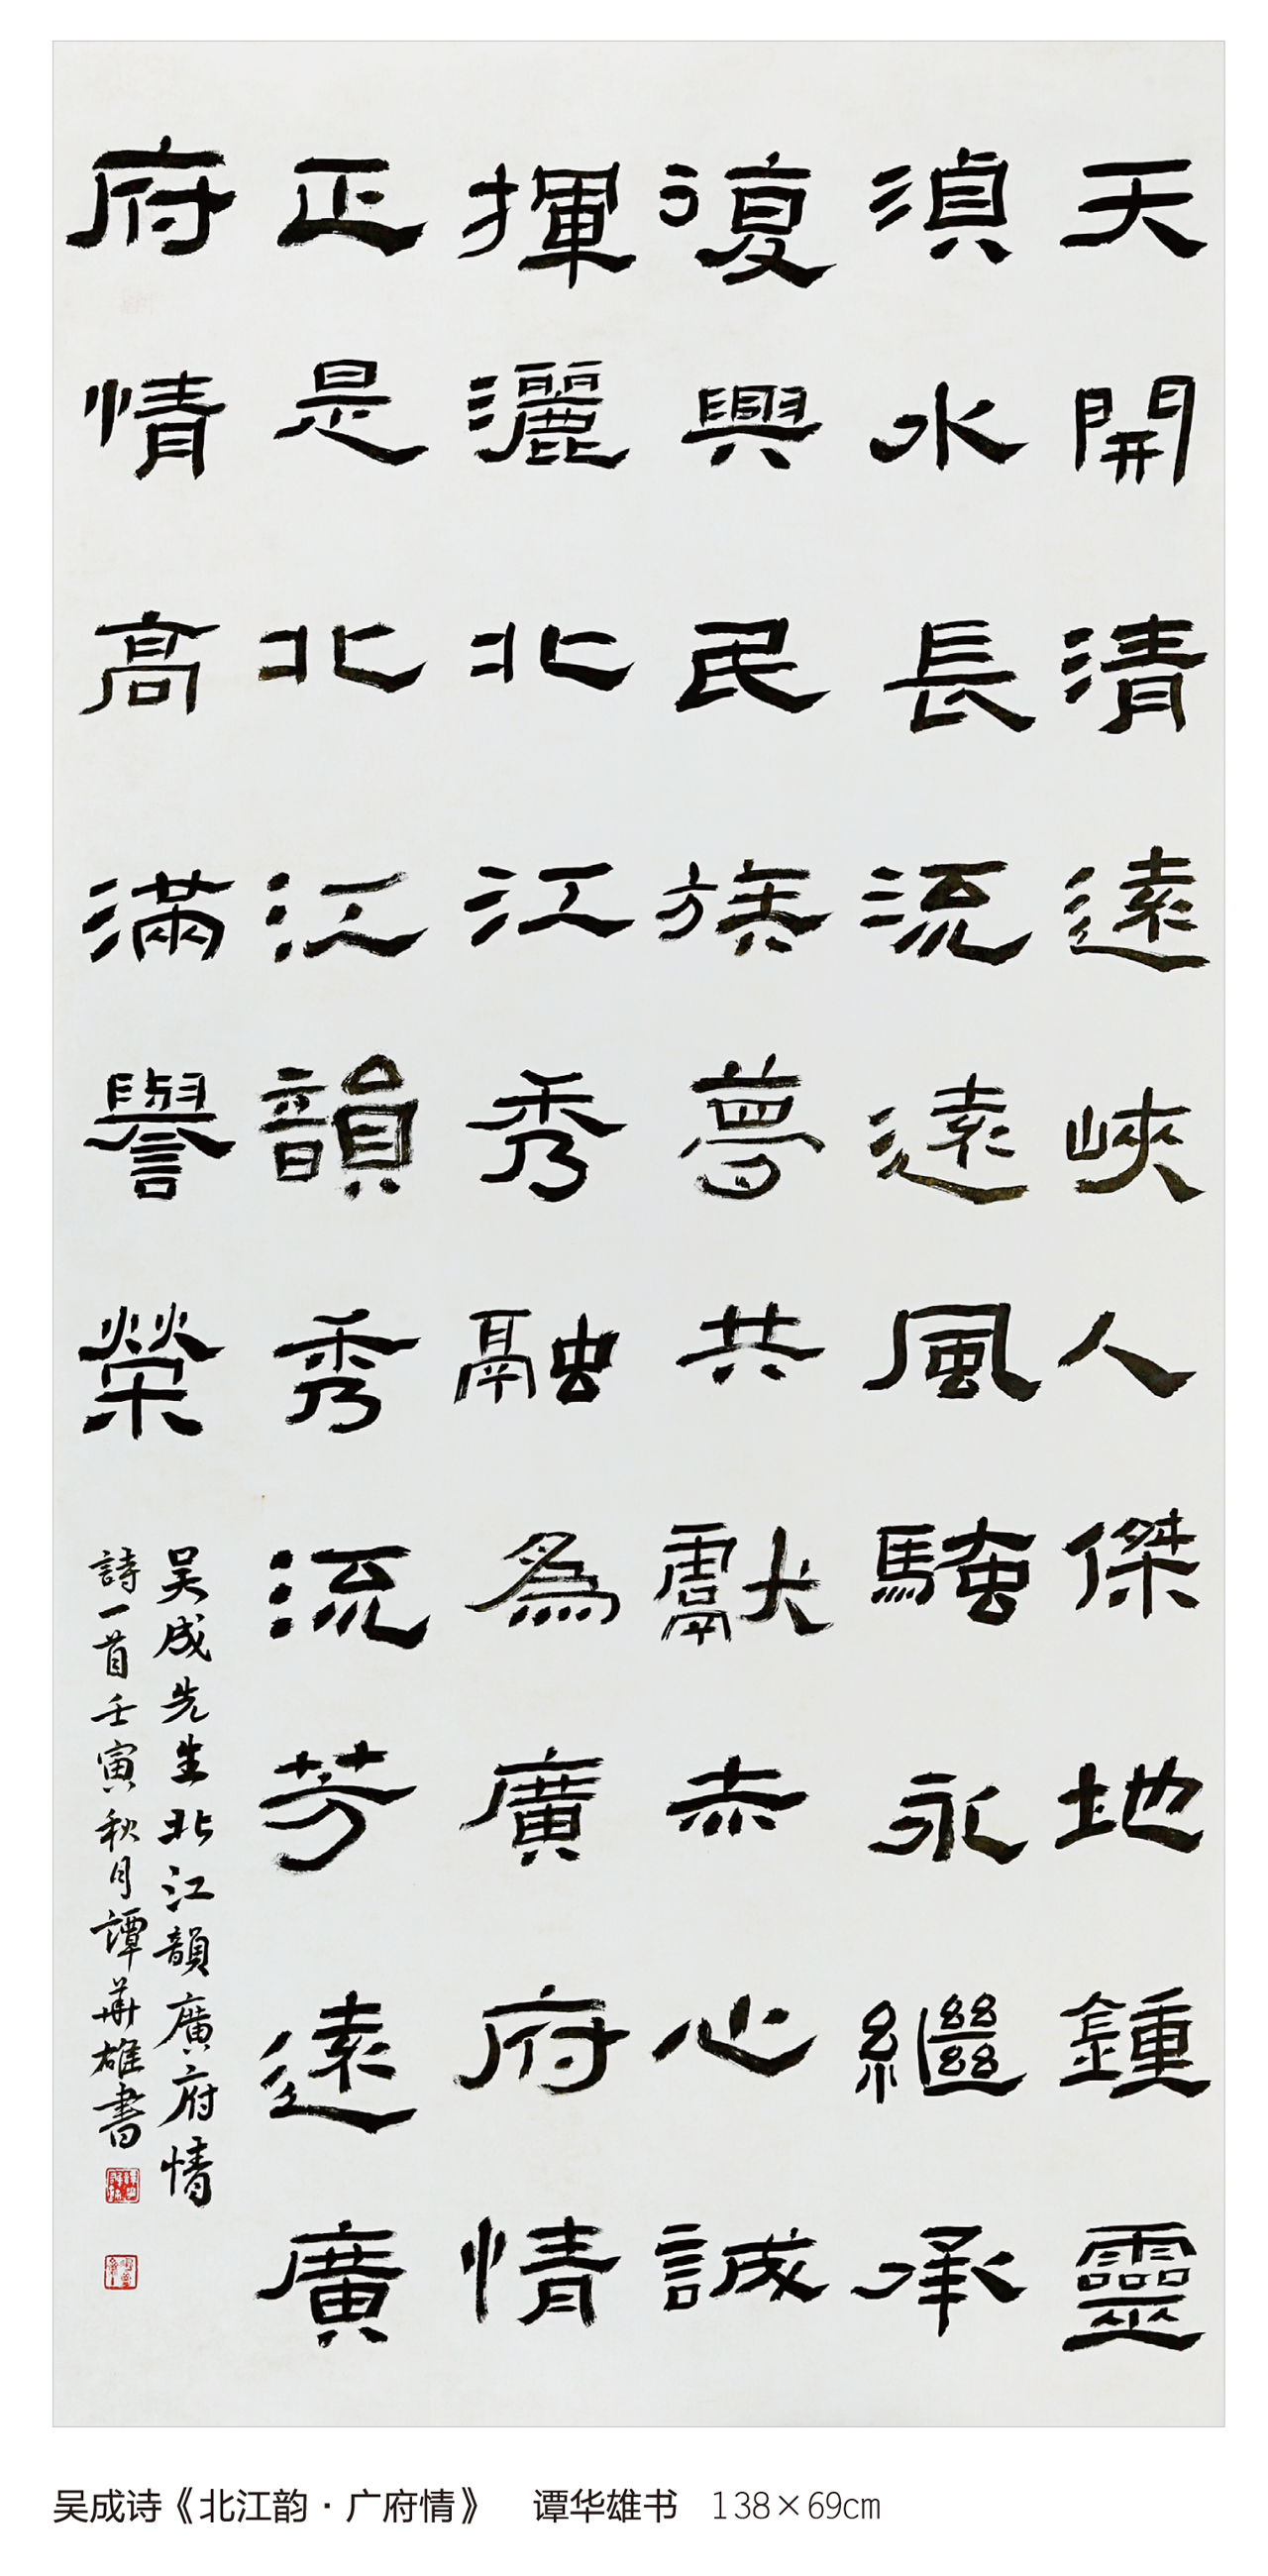 天開清遠峽人傑地鍾靈
湞水長流遠風騷永繼承
復興民族夢共獻赤心誠
揮灑北江秀融為廣府情
正是北江韻秀流芳遠廣
府情高滿譽榮
吴成先生北江韻廣府情
詩一首壬寅秋月譚華雄書
吴成诗《北江韵·广府情》 谭华雄书 138×69cm